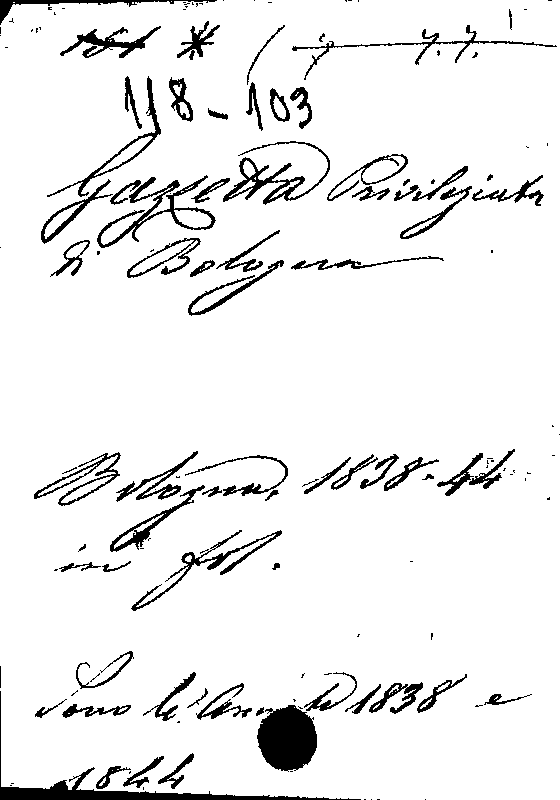 118-103
Gazzetta Privilegiata
di Bologna
Bologna, 1838-44
in fol.
Sono le 1838 e
1844